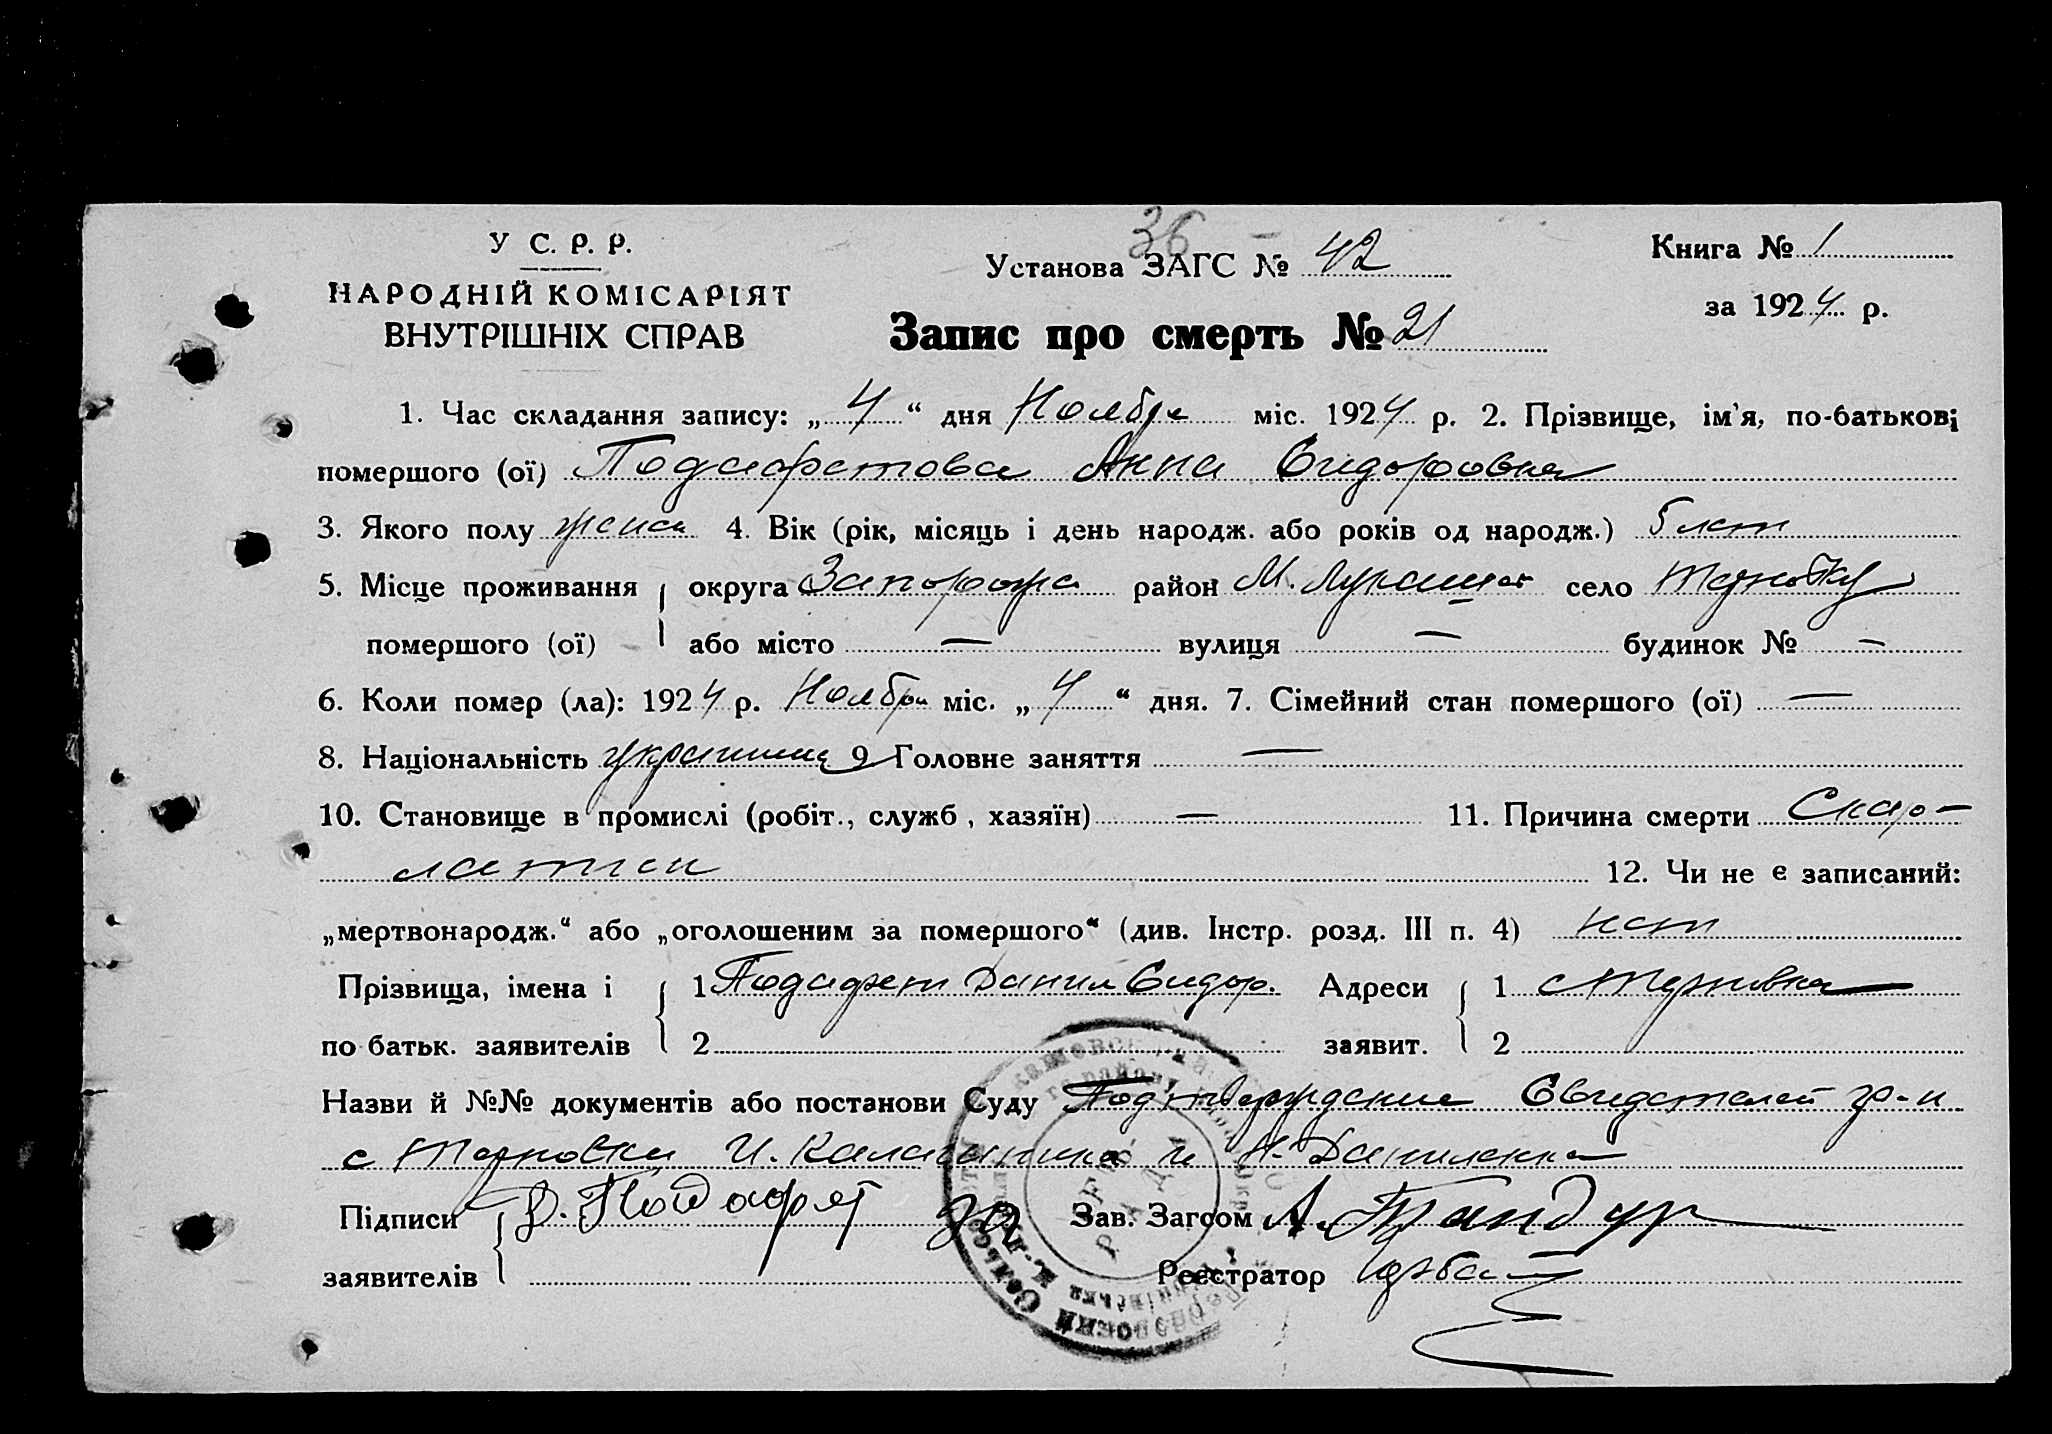 У С. Р. Р.
НАРОДНІЙ КОМІСАРІЯТ
ВНУТРІШНІХ СПРАВ
36
Установа ЗАГС № 42
Запис про смерть № 21
Книга № 1
за 1924 р.
1. Час складання запису: „4“ дня Ноября міс. 1924 р. 2. Прізвище, ім'я, по-батькові
помершого (ої) Анна Сидоровна
3. Якого полу женск 4. Вік (рік, місяць і день народж. або років од народж.) 5 лет
5. Місце проживання округа Запорожа район М. село Терновку
помершого (ої) або місто — вулиця — будинок № —
6. Коли помер (ла): 1924 р. Ноября міс. „4“ дня. 7. Сімейний стан помершого (ої) —
8. Національність 9 Головне заняття —
10. Становище в промислі (робіт., служб, хазяїн) — 11. Причина смерти Скар-
латин
12. Чи не є записаний:
„мертвонародж.“ або „оголошеним за помершого“ (див. Інстр. розд. III п. 4) нет
Прізвища, імена і 1 Данил Сидор. Адреси 1 с Терновка
по батьк. заявителів 2 заявит. 2
Назви й №№ документів або постанови Суду Подтверждение Свидетелей гр-н
с Терновки И. и Н. Даниленка
Підписи Зав. Загсом
заявителів Реєстратор